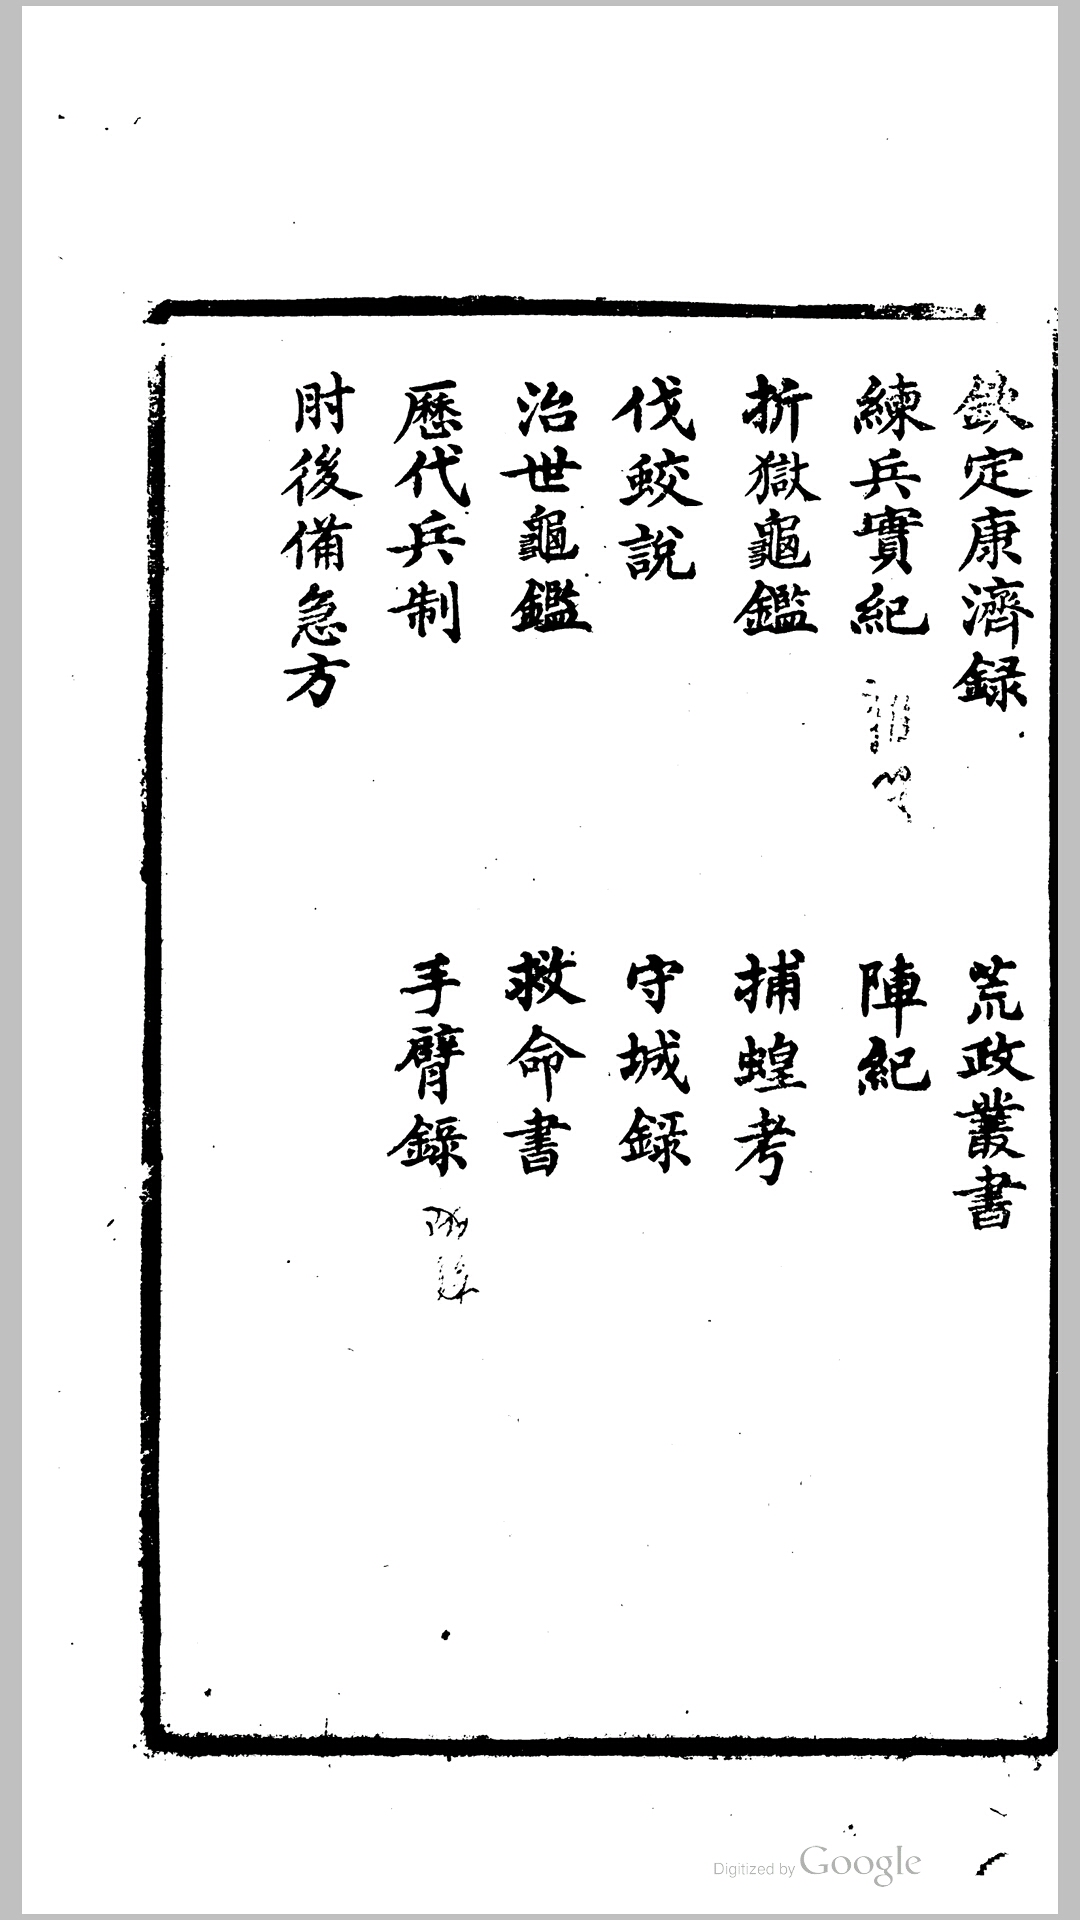 欽定康濟録
荒政叢書
練兵實紀
陣紀
折獄龜鑑
捕蝗考
伐蛟說
守城録
治世龜鑑
救命書
歷代兵制
手臂録
肘後備急方
Digitized by Google